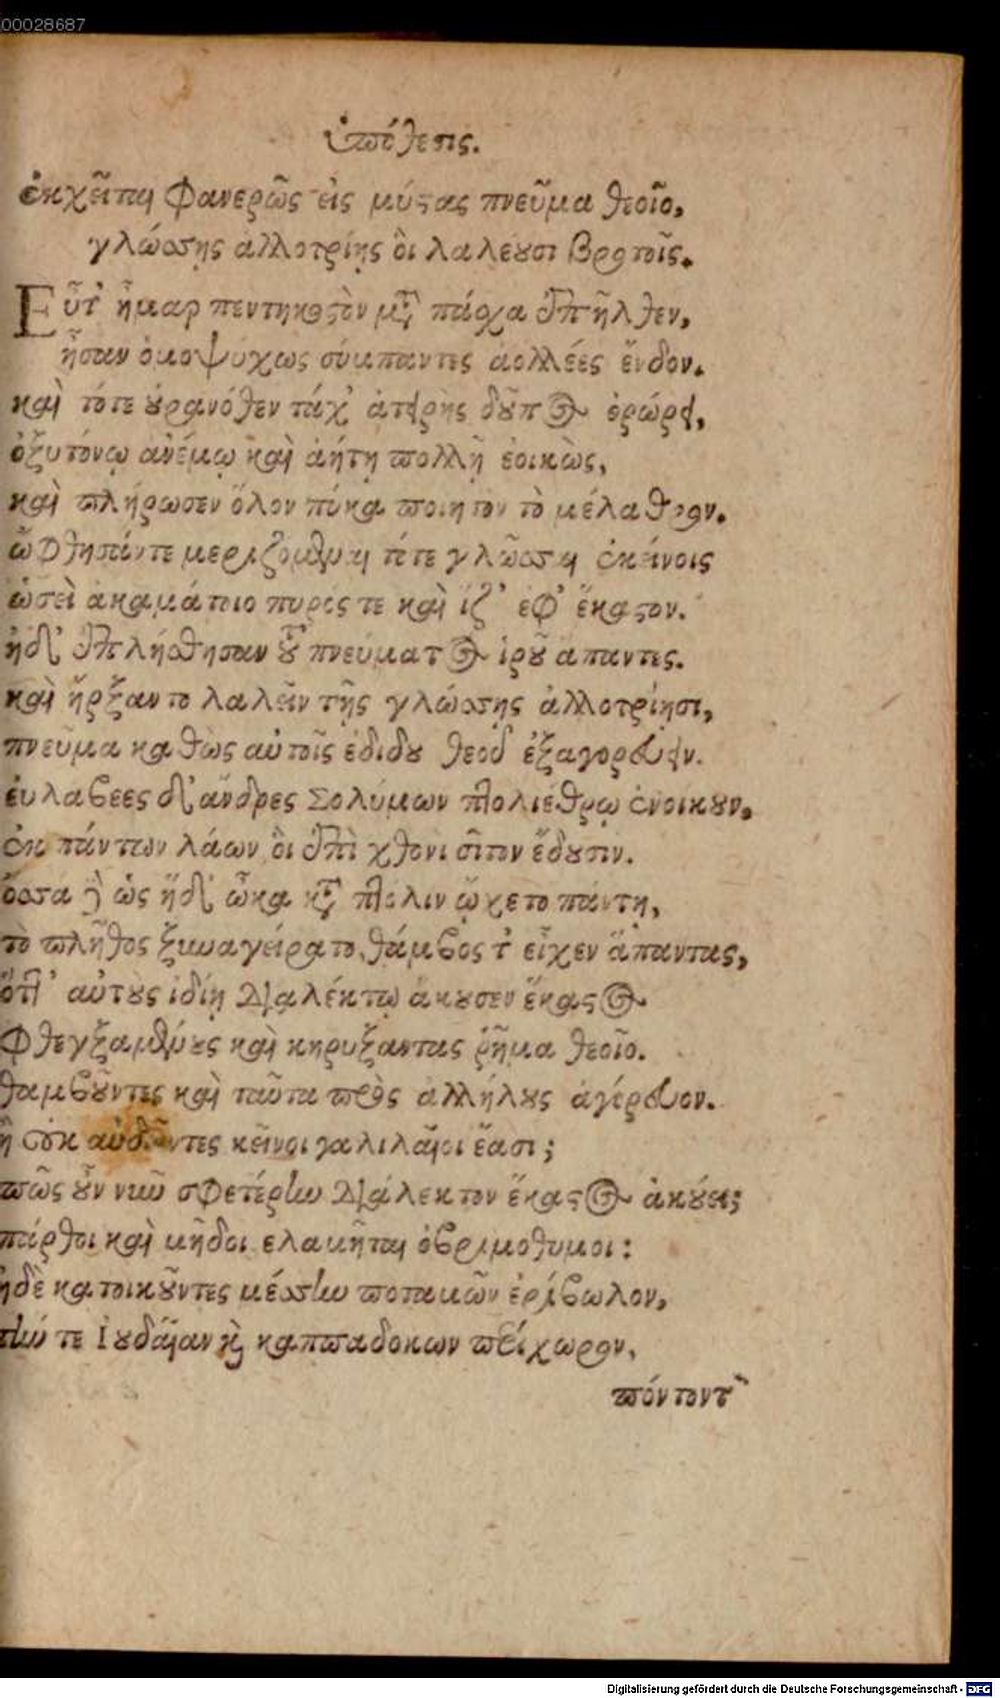 00028687
ὑπόθεσις.
ἐκχεῖται φανερῶς εἰς μύστας πνεῦμα θεοῖο,
γλώσσῃς ἀλλοτρίῃς οἳ λαλέουσι βροτοῖς.
Εὖτ' ἦμαρ πεντηκοστὸν μετὰ πάσχα ἐπῆλθεν,
ἦσαν ὁμοψύχως σύμπαντες ἀολλέες ἔνδον.
καὶ τότε οὐρανόθεν τάχ' ἀτειρὴς δοῦπος ὀρώρει,
ὀξυτόνῳ ἀνέμῳ καὶ ἀήτῃ πολλῇ ἐοικὼς,
καὶ πλήρωσεν ὅλον πύκα ποιητὸν τὸ μέλαθρον.
ὤφθησάν τε μεριζόμεναι τότε γλῶσσαι ἐκείνοις
ὡσεὶ ἀκαμάτοιο πυρός τε καὶ ἵζ' ἐφ' ἕκαστον.
ἠδ' ἐπλήσθησαν τοῦ πνεύματος ἱροῦ ἅπαντες.
καὶ ἤρξαντο λαλεῖν τῇς γλώσσῃς ἀλλοτρίῃσι,
πνεῦμα καθὼς αὐτοῖς ἐδίδου θεοῦ ἐξαγορεύειν.
εὐλαβέες δ' ἄνδρες Σολύμων πτολιέθρῳ ἐνοικουν,
ἐκ πάντων λάων οἳ ἐπὶ χθονὶ σῖτον ἔδουσιν.
ὄσσα δὲ ὡς ἥδ' ὦκα κατὰ πτόλιν ᾤχετο πάντη,
τὸ πλῆθος ξυναγείρατο, θάμβος τ' εἶχεν ἅπαντας,
ὅττι' αὐτοὺς ἰδίῃ διαλέκτῳ ἄκουσεν ἕκαστος
φθεγξαμένους καὶ κηρύξαντας ῥῆμα θεοῖο.
θαμβοῦντες καὶ ταῦτα πρὸς ἀλλήλους ἀγόρευον.
ἢ οὐκ αὐδῶντες κεῖνοι γαλιλαῖοι ἔασι;
πῶς οὖν νῦν σφετέρην διάλεκτον ἕκαστος ἀκούει;
πάρθοι καὶ μῆδοι ελαμῆται ὀβριμοθυμοι:
ἠδὲ κατοικοῦντες μέσσην ποταμῶν ἐρίβωλον,
τήν τε Ἰουδαίαν καὶ καππαδοκων περίχωρον,
πόντοντ'
Digitalisierung gefördert durch die Deutsche Forschungsgemeinschaft - DFG